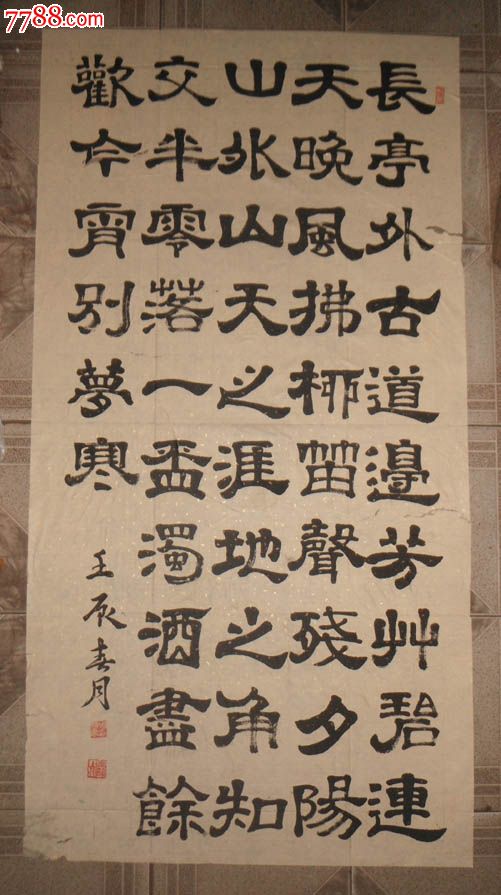 7788.com
長亭外古道邊芳艸碧連
天晚風拂柳笛聲殘夕陽
山外山天之涯地之角知
交半零落一盃濁酒盡餘
歡今宵別夢寒
壬辰春月